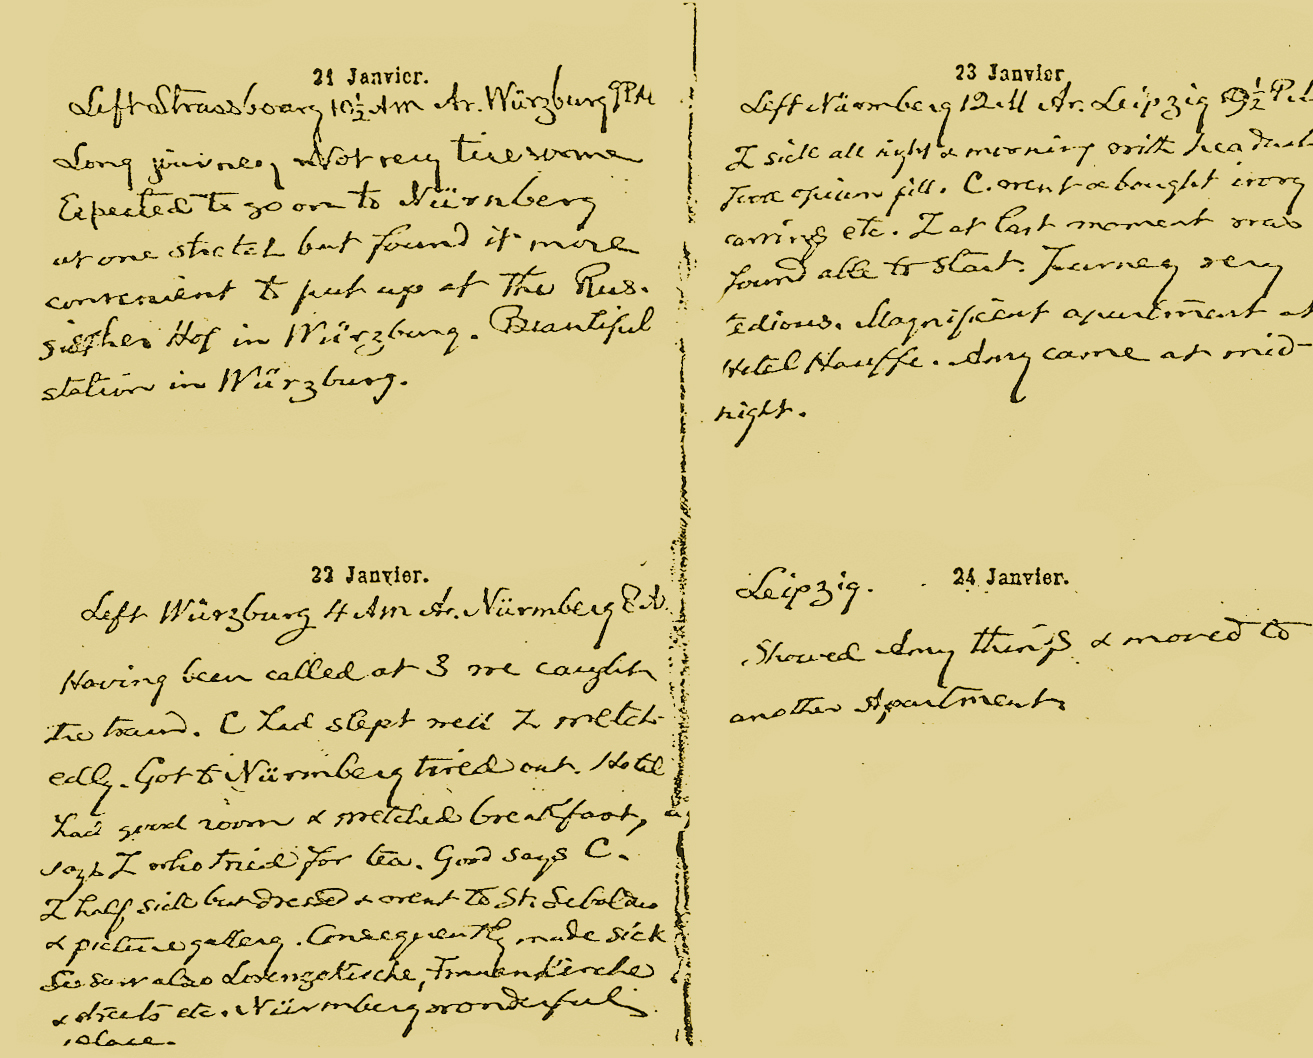 21 Janvier.
Left Strassbourg 10½ AM Ar. Würzburg 9 PM
Long journey Not very tiresome
Expected to go on to Nürnberg
at one stretch but found it more
convenient to put up at the Rus-
sischer Hof in Würzburg. Beautiful
station in Würzburg.
22 Janvier.
Left Würzburg 4 AM Ar. Nürmberg 8 A.
Having been called at 3 we caught
the train. C had slept well I wretch-
edly. Got to Nürmberg tired out. Hotel
had good room & wretched breakfast,
says I who tried for tea. Good says C.
I half sick but dressed & went to St. Sebaldus
& picture gallery. Consequently made sick
So saw also Lorenzokische, Frauenkirche
& streets etc. Nürmberg wonderful
place.
23 Janvier
Left Nürmberg 12 M Ar. Leipzig 9½ P.M.
I sick all night & morning with headach
Took opium pill. C. went & bought ivory
earrings etc. I at last moment was
found able to start. Journey very
tedious. Magnificent apartment at
Hotel Hauffe. Amy came at mid-
night.
24 Janvier.
Leipzig.
Showed Amy things & moved to
another Apartment.